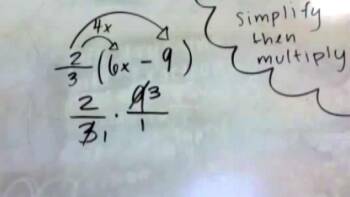 4x
2/3 (6x - 9)
2/3 1 · 9 3/1
simplify
then
multiply